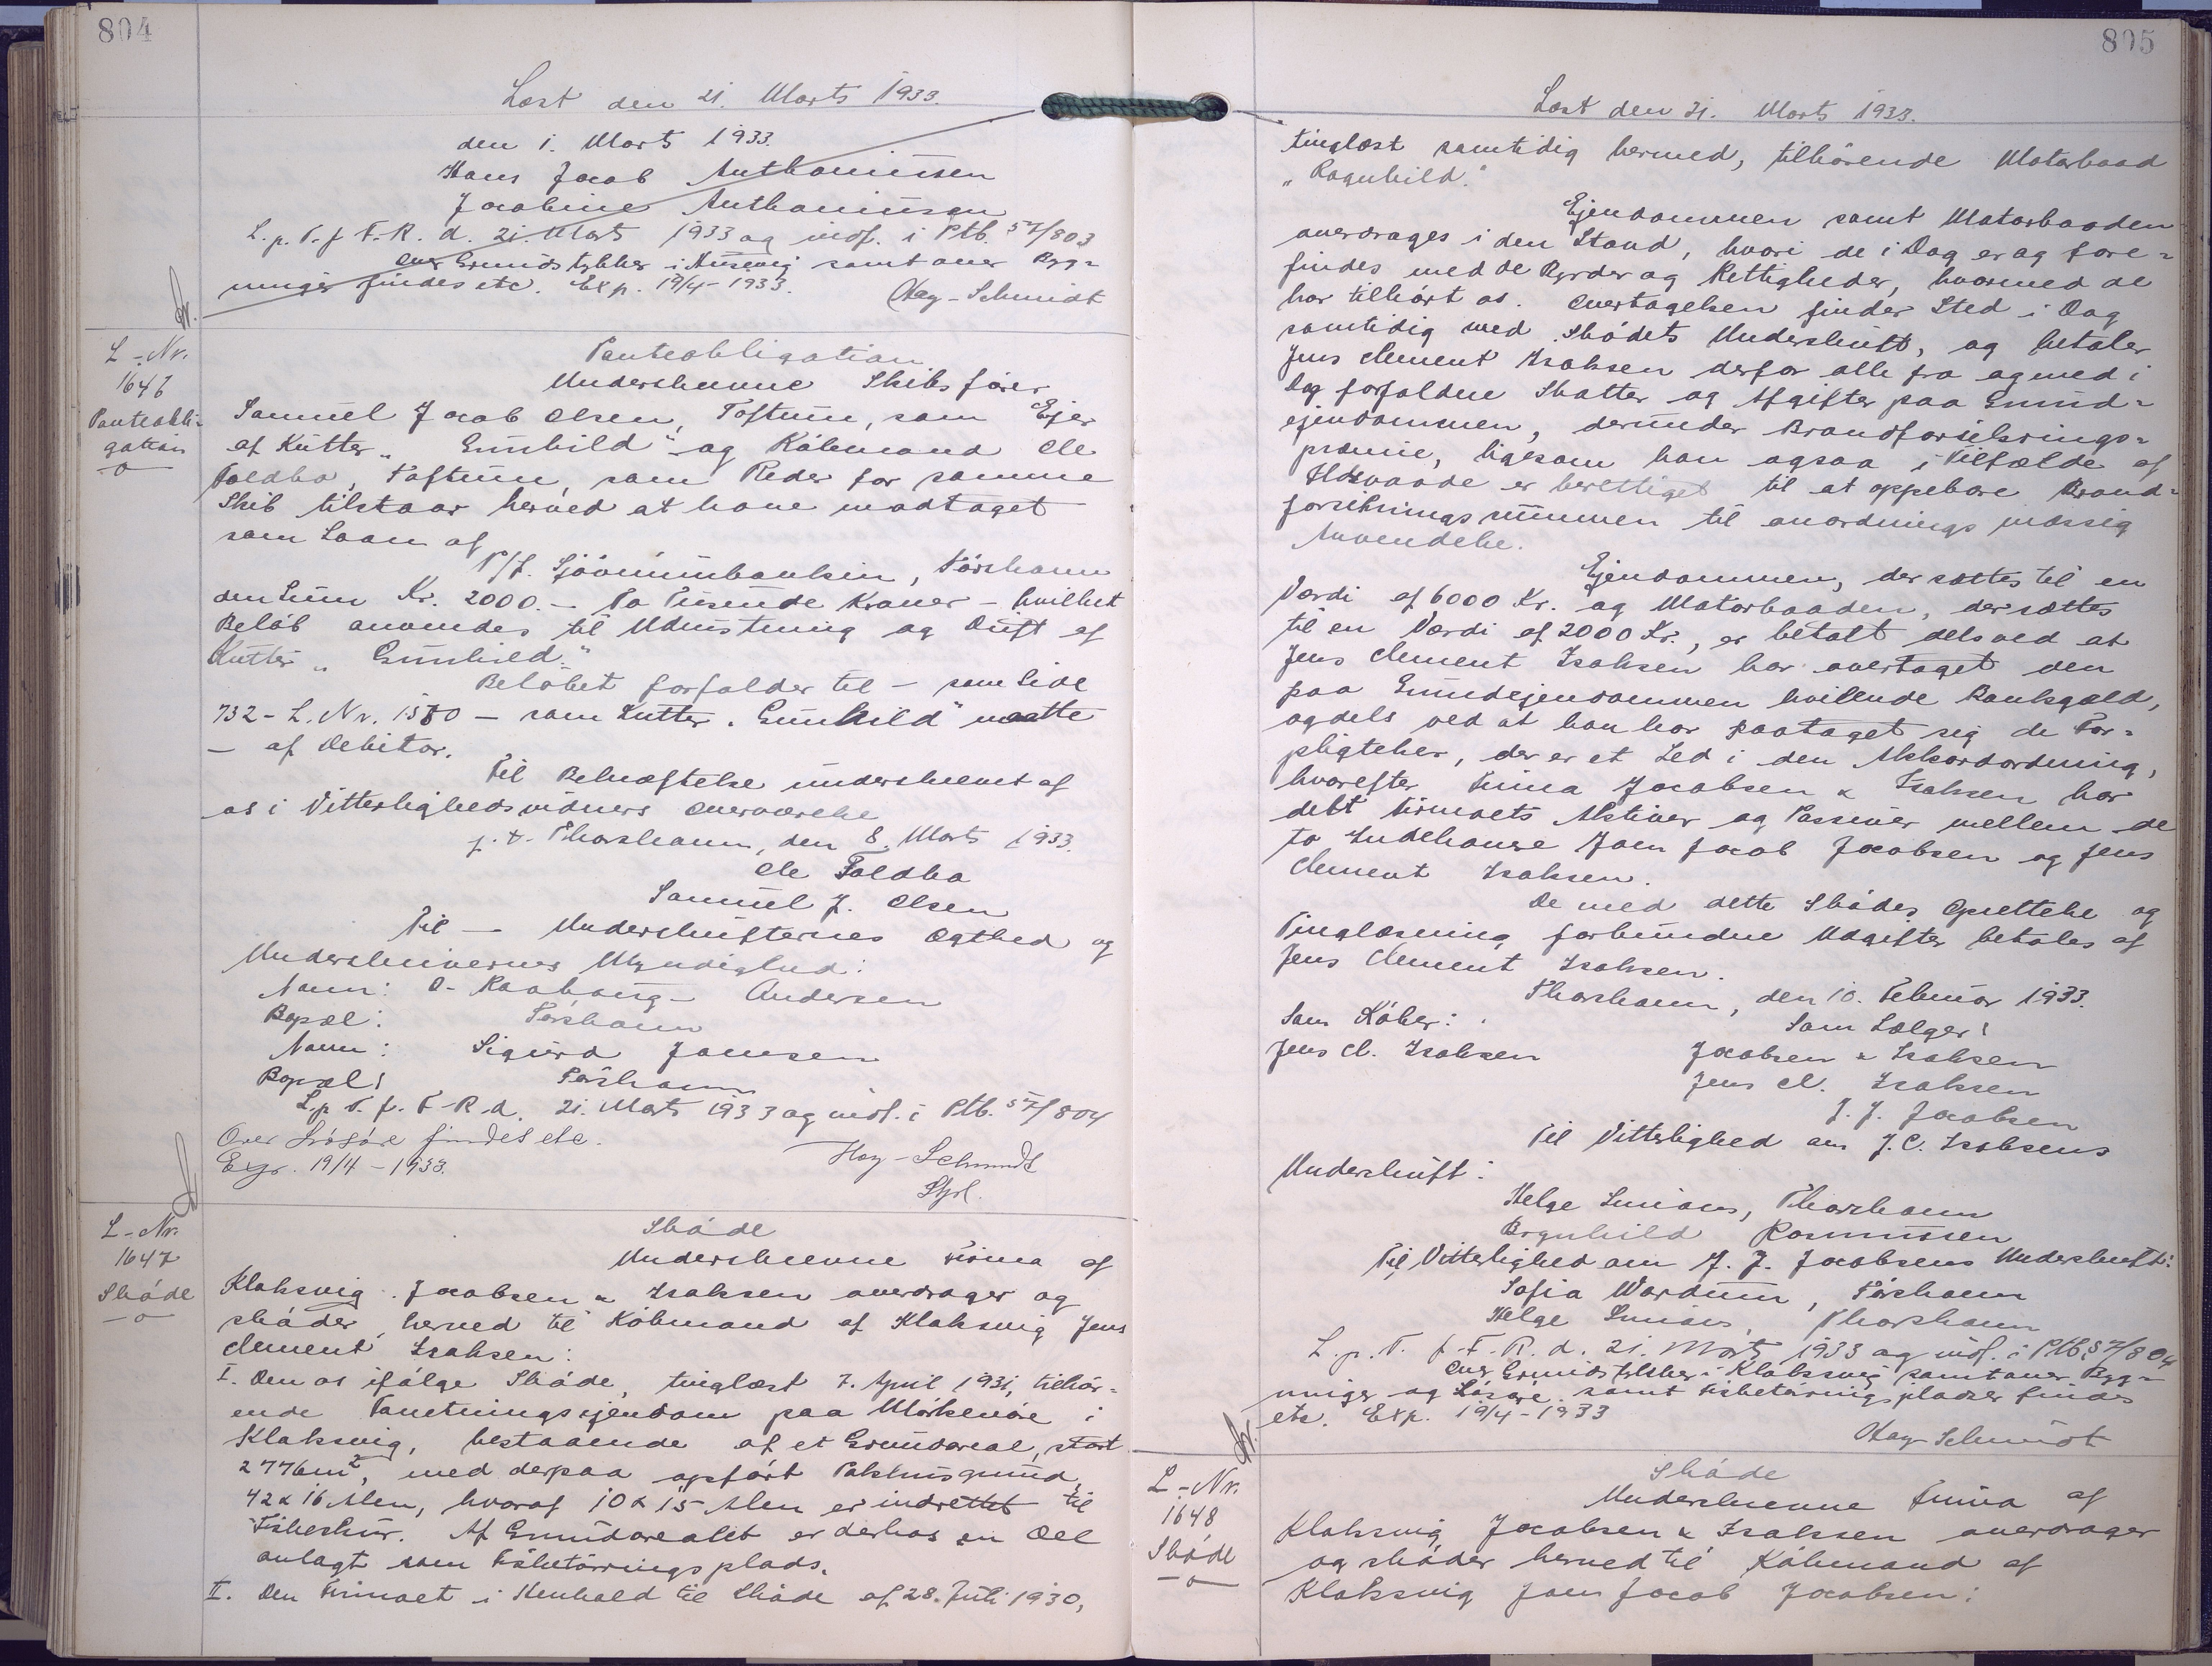 804
Læst den 21. Marts 1933.
den 1. Marts 1933.
Hans Jacob Anthoniussen
Jacobine Anthoniussen
L. p. T. f. F. R. d. 21. Marts 1933 og indf. i Ptb. 57/803
over Grundstykker i samt over Byg-
ninger findes etc. Exp. 19/4-1933. Hay-Schmidt
L-Nr.
1646
Panteobli-
gation
Panteobligation
Underskrevne Skibsfører
Samuel Jacob Olsen, Toftum, som Ejer
af Kutter „Gunhild" og Købmand Ole
Foldbo, Toftum, som Reder for samme
Skib tilstaar herved at have modtaget
som Laan af
P/f. Sjóvinnubankin, Tórshavn
den Sum Kr. 2000.- To Tusende Kroner - hvilket
Beløb anvendes til Udrustning og Drift af
Kutter „Gunhild."
Beløbet forfalder til - som Side
732 - L. Nr. 1580 - som Kutter „Gunhild" maatte
- af Debitor.
Til Bekræftelse underskrevet af
os i Vitterlighedsvidners Overværelse
p. t. Thorshavn, den 8. Marts 1933.
Ole Foldbo
Samuel J. Olsen
Til - Underskrifternes Ægthed og
Underskrivernes Myndighed:
Navn: O. Andersen
Bopæl: Tórshavn
Navn: Sigurd Joensen
Bopæl: Tórshavn
L. p. T. f. F. R. d. 21. Marts 1933 og indf. i Ptb. 57/804
Over Løsøre findes etc.
Exp. 19/4-1933. Hay-Schmidt
Styrl.
L-Nr.
1647
Skøde
Skøde
Underskrevne Firma af
Klaksvig Jacobsen & Isaksen overdrager og
skøder herved til Købmand af Klaksvig Jens
Clement Isaksen:
I. Den os ifølge Skøde, tinglæst 7. April 1931, tilhør-
ende Forretningsejendom paa i
Klaksvig, bestaaende af et Grundareal, stort
2776 m², med derpaa opført Pakhusgrund
42 x 16 Alen, hvoraf 10 x 15 Alen er indrettet til
Fiskeskur. Af Grundarealet er derhos en Del
anlagt som Fisketørringsplads.
II. Den Firmaet i Henhold til Skøde af 28. Juli 1930,
805
Læst den 21. Marts 1933.
tinglæst samtidig hermed, tilhørende Motorbaad
„Ragnhild."
Ejendommen samt Motorbaaden
overdrages i den Stand, hvori de i Dag er og fore-
findes med de Byrder og Rettigheder, hvormed de
har tilhørt os. Overtagelsen finder Sted i Dag
samtidig med Skødets Underskrift, og betaler
Jens Clement Isaksen derfor alle fra og med i
Dag forfaldne Skatter og Afgifter paa Grund-
ejendommen, derunder Brandforsikrings-
præmie, ligesom han ogsaa i Tilfælde af
Ildsvaade er berettiget til at oppebære Brand-
forsikringssummen til anordningsmæssig
Anvendelse.
Ejendommen, der sættes til en
Værdi af 6000 Kr. og Motorbaaden, der sættes
til en Værdi af 2000 Kr., er betalt dels ved at
Jens Clement Isaksen har overtaget den
paa Grundejendommen hvilende Bankgæld,
og dels ved at han har paataget sig de For-
pligtelser, der er et Led i den Akkordordning,
hvorefter Firma Jacobsen & Isaksen har
delt Firmaets Aktiver og Passiver mellem de
to Indehavere Joen Jacob Jacobsen og Jens
Clement Isaksen.
De med dette Skødes Oprettelse og
Tinglæsning forbundne Udgifter betales af
Jens Clement Isaksen.
Thorshavn, den 10. Februar 1933.
Som Køber: Som Sælger:
Jens Cl. Isaksen Jacobsen & Isaksen
Jens Cl. Isaksen
J. J. Jacobsen
Til Vitterlighed om J. C. Isaksens
Underskrift:
Helge Thorshavn
Ragnhild Rasmussen
Til Vitterlighed om J. J. Jacobsens Underskrift:
Sofia Wardum, Tórshavn
Helge Thorshavn
L. p. T. f. F. R. d. 21. Marts 1933 og indf. i Ptb 57/804
over Grundstykker i Klaksvig samt over Byg-
ninger og Løsøre samt Fisketørringspladser findes
etc. Exp. 19/4-1933
Hay Schmidt
L-Nr.
1648
Skøde
Skøde
Underskrevne Firma af
Klaksvig Jacobsen & Isaksen overdrager
og skøder herved til Købmand af
Klaksvig Joen Jacob Jacobsen: